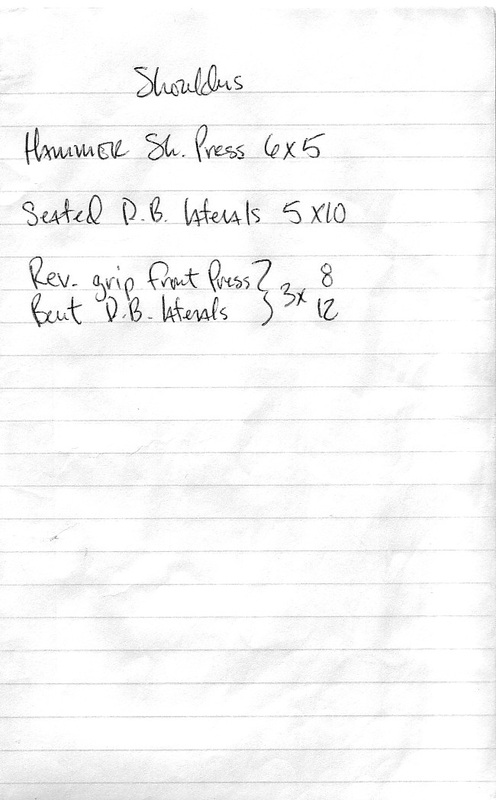 Shoulders
Hammer Sh. Press 6x5
Seated D.B. laterals 5 x10
Rev. grip front Press } 3x 8
Bent D.B. laterals } 12